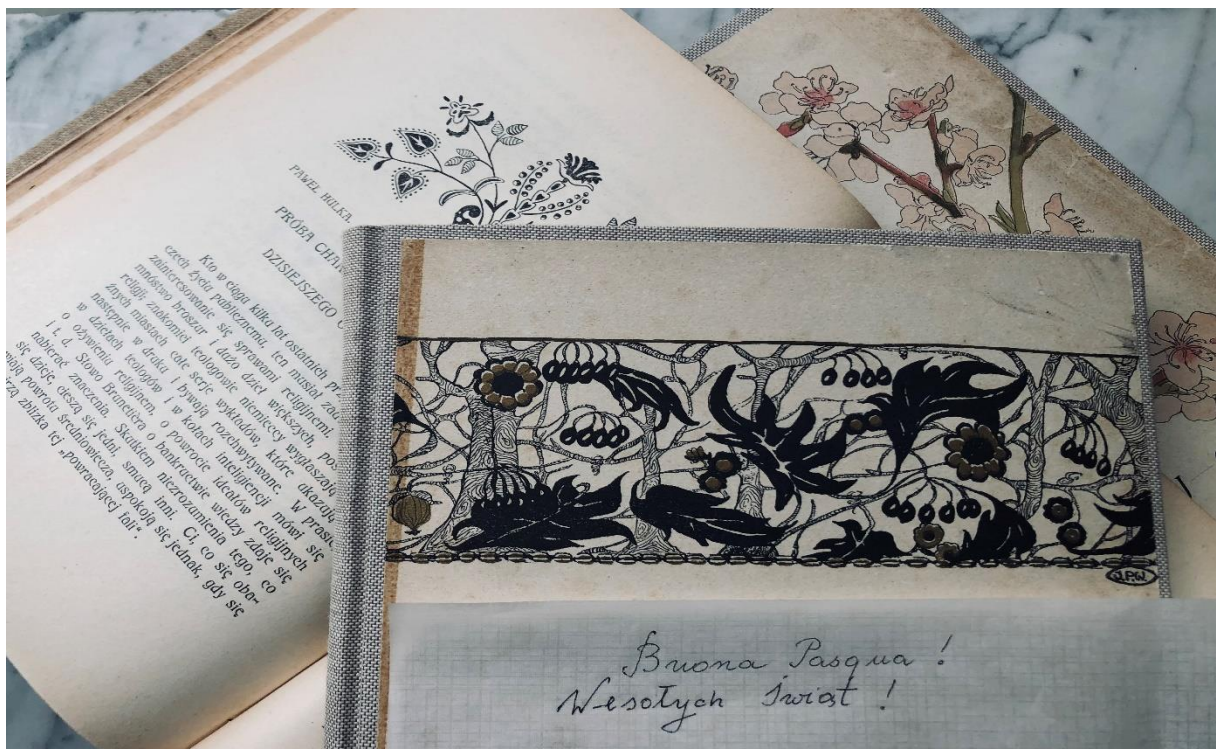 PAWEŁ HULKA.
PRÓBA
DZISIEJSZEGO
Kto w ciągu kilka lat ostatnich
czech życia publicznemu, ten musiał
zainteresowanie się sprawami religijnemi.
mnóstwo broszur i dużo dzieł większych,
religii znakomici teologowie niemieccy wygłaszają
znych miastach całe serje wykładów, które ukazują
następnie w druku i bywają rozchwytywane. W
w dziełach teologów i w kołach inteligiencji mówi się
o ożywieniu religijnem, o powrocie ideałów religijnych
i t. d. Słowo Brunetiera o bankructwie wiedzy zdaje się
nabierać znaczenia. Skutkiem niezrozumienia tego, co
się dzieje, cieszą się jedni, smucą inni. Ci, co się oba-
wiają powrotu średniowiecza, uspokoją się jednak, gdy się
zbliżka tej „powracającej fali".
Buona Pasqua !
Wesołych Świąt !